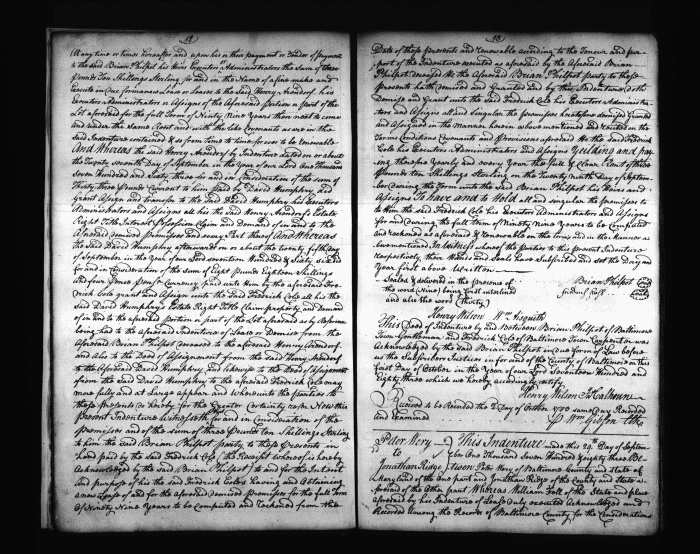 12
At any time or times hereafter and upon his or their payment or Tender of payment
to the said Brian Philpot his Heirs Executors Administrators the Sum of three
Pounds Ten Shillings Sterling for and in the Name of a fine make and
Execute in due form a new Lease or Leases to the said Henry Arendorf his
Executors Administrators or Assigns of the Aforesaid portion or part of the
Lot aforesaid for the full Term of Ninety Nine Years then next to come
and under the Same Rent and with the like Covenants as are in the
said Indenture contained & so from time to time for ever to be renewable
And Whereas the said Henry Arendorf by Indenture dated on or about
the Twenty Seventh Day of September in the Year of our Lord One thousand
Seven Hundred and Sixty three for and in Consideration of the sum of
Thirty three Pounds Current to him paid by David Humphry did
Grant Assign and transfer to the said David Humphry his Executors
Administrators and Assigns all his the said Henry Arendorf's Estate
Right Title Interest Possession Claim and Demand of in and to the
Aforesaid demised Premises and every Part thereof And Whereas
the said David Humphry afterward on or about the twenty fifth Day
of September in the Year of our Lord Seventeen Hundred & Sixty
for and in Consideration of the Sum of Eight Pounds Eighteen Shillings
and four Pence Currency paid unto him by the aforesaid Fre-
derick Cole grant and Assign unto the said Frederick Cole all his the
said David Humphry's Estate Right Title Claim property and Demand
of in and to the aforesaid portion or part of the Lot aforesaid as by Reference
being had to the Aforesaid Indenture of Lease or Demise from the
Aforesaid Brian Philpot deceased to the aforesaid Henry Arendorf
and also to the Deed of Assignment from the said Henry Arendorf
to the Aforesaid David Humphry and likewise to the Deed of Assignment
from the said David Humphry to the aforesaid Frederick Cole may
more fully and at Large appear and whereunto the parties to
these presents do hereby for the Greater Certainty refer Now this
Present Indenture Witnesseth that for and in Consideration of the
premises and of the sum of three Pounds ten Shillings Sterling
to him the said Brian Philpot party to these Presents in
hand paid by the said Frederick Cole the Receipt whereof is hereby
Acknowledged by the said Brian Philpot to and for the Intent
and purpose of his the said Frederick Cole's having and Obtaining
a new Lease of and for the aforesaid demised Premises for the full Term
of Ninety Nine Years to be Computed and reckoned from the
13
Date of these presents and renewable according to the Tenour and pur-
port of the Indenture executed as aforesaid by the Aforesaid Brian
Philpot deceased He the Aforesaid Brian Philpot party to these
Presents hath demised and Granted and by this Indenture doth
Demise and Grant unto the said Frederick Cole his Executors Administra-
tors and Assigns all and Singular the premises heretofore demised Granted
and Assigned in the Manner herein abovementioned and recited on the
Terms Conditions Covenants and Provisions aforesaid He the said Frederick
Cole his Executors Administrators and Assigns Yielding and pay-
ing therefor Yearly and every Year the full & clear Rent of three
Pounds ten Shillings Sterling on the Twenty Ninth Day of Septem-
ber during the Term unto the said Brian Philpot his Heirs and
Assigns To have and to Hold all and singular the premises to
to Him the said Frederick Cole his Executors Administrators and Assigns
for and during the full Term of Ninety Nine Years to be Computed
and reckoned as aforesaid & renewable on the terms and in the Manner as
abovementioned In Witness whereof the parties to this present Indenture
respectively their Hands and Seals have Subscribed and set the Day and
Year first above Written
Sealed & delivered in the presence of
the word (Nine) being first interlined
and also the word (Thirty)
Brian Philpot
Henry Wilson Wm Asquith
This Deed of Indenture by and between Brian Philpot of Baltimore
Town Gentleman and Frederick Cole of Baltimore Town Carpenter was
Acknowledged by the said Brian Philpot in due form of Law before
us the Subscribers Justices in for and of the County of Baltimore on this
Last Day of October in the Year of our Lord Seventeen Hundred and
Eighty three which we hereby accordingly certify
Henry Wilson Ja Calhoun
Received to be Recorded the 2 Day of October 1783 same day Recorded
and Examined
P Wm Gibson Clk
Peter Mery
to
Jonathan Ridge
This Indenture made this 24th Day of Septem-
ber One Thousand Seven Hundred Eighty three Be-
tween Peter Mery of Baltimore County and State of
Maryland of the One part and Jonathan Ridge of the County and state a-
foresaid of the Other part Whereas William Fell of the State and place
aforesaid by his Indenture of Lease duly executed Acknowledged and
Recorded Among the Records of Baltimore County for the Considerations